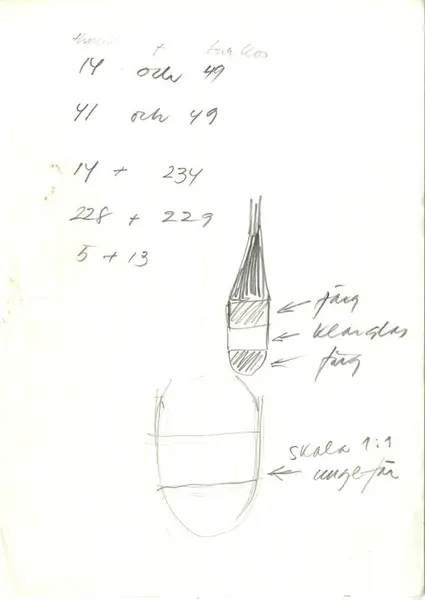 14 och 49
41 och 49
14 + 234
228 + 229
5 + 13
färg
klarglas
färg
skala 1:1
ungefär